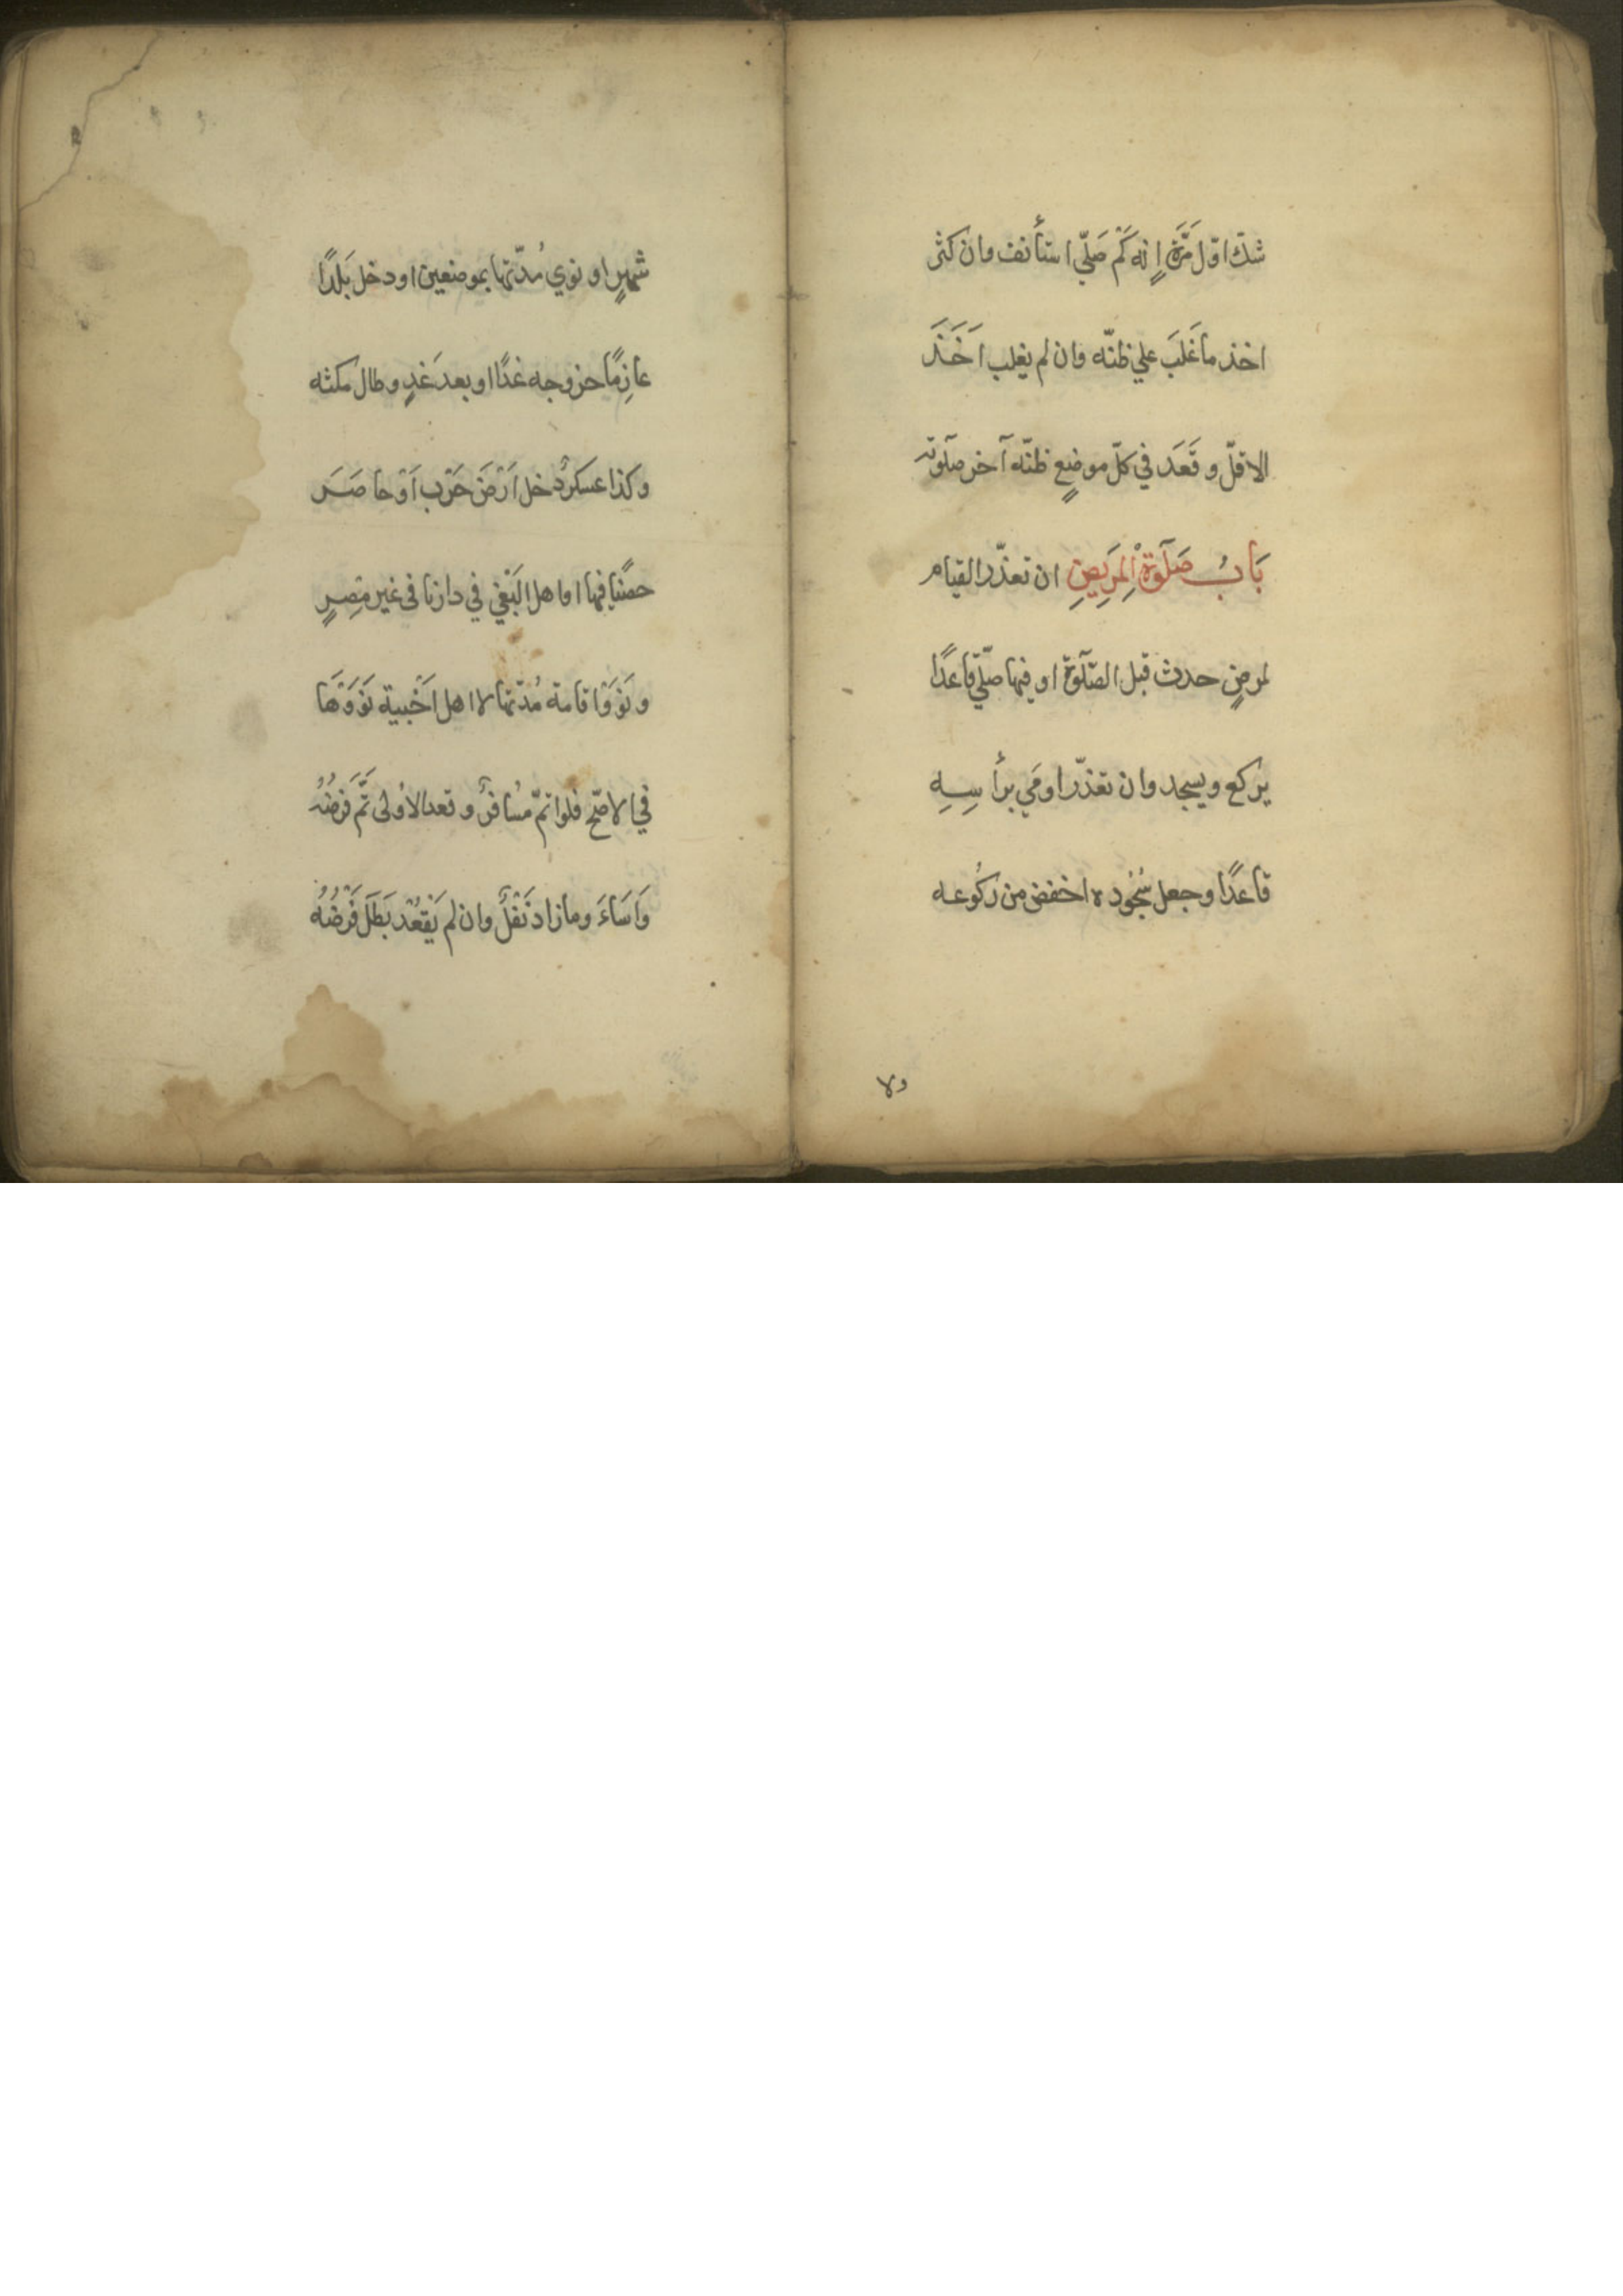 شكّ اوّل مَرَّةٍ انه كَمْ صَلّي استأنف وان كثر
اخذ ما غَلَبَ علي ظنّه وان لم يغلب اَخَذَ
الاقلّ وقَعَدَ في كلّ موضعٍ ظنّه آخر صلٓوته
بَابُ صَلٓوةْ اِلمَرِيضِ ان تعذّر القيام
لمرضٍ حدث قبل الصّلٓوة او فيها صلّي قاعدًا
يركع ويسجد وان تعذّر اومَي برأسِهِ
قاعدًا وجعل سُجُوده اخفض من رُكُوعه
ولا
شهرٍ او نوي مُدّتها بموضعين او دخل بَلَدًا
عازِمًا خروجه غدًا او بعد غَدٍ وطال مكثه
وكذا عسكرٌ دخل اَرْضَ حَرْب اَوْ حاصَرَ
حصنًا فيها او اهل البَغْيِ في دارنا في غير مِصِرٍ
ونَوَوْا اقامة مُدّتها لا اهل اَخْبية نَوَوْهَا
في الاصّح فلو اتمّ مُسَافرٌ وقعد الاُولى تَمَّ فرضُهُ
وَاَسَاءَ وما زاد نَفْلٌ وان لم يَقْعُدْ بَطَلَ فَرْضُهُ